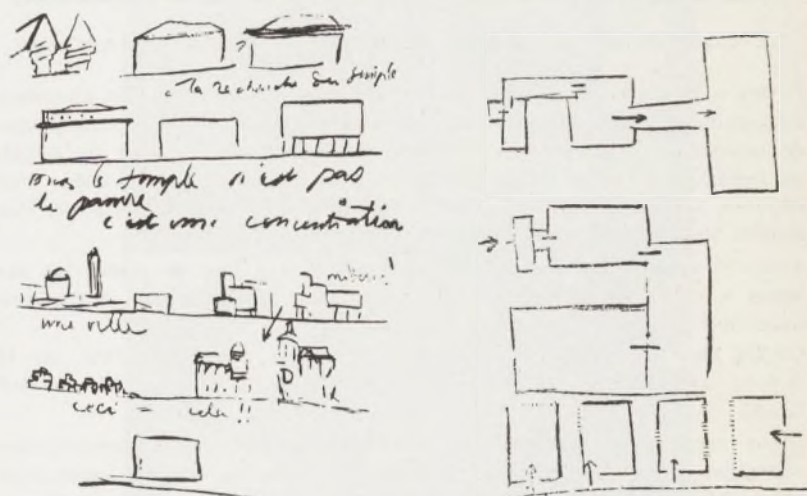 la recherche du simple
mais le simple n'est pas
le pauvre
c'est une concentration
une ville
ceci = cela !!